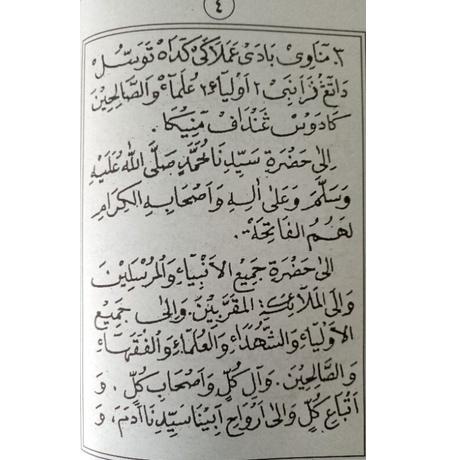 ٤
٣. مناوى بادى عملاكى كداه توسل
دانغ فرا نبى٢ اولياء٢ علماء والصالحين
كادوس غنداف منيكا.
اِلىٰ حَضْرَةِ سَيِّدِنَا مُحَمَّدٍ صَلَّى اللّٰهُ عَلَيْهِ
وَسَلَّمَ وَعَلىٰ اٰلِهِ وَاَصْحَابِهِ الكِرَامِ
لَهُمُ الفَاتِحَةْ.
اِلىٰ حَضْرَةِ جَمِيْعِ الاَنْبِيَاءِ وَالمُرْسَلِيْنَ
وَاِلَى المَلَائِكَةِ المُقَرَّبِيْنَ. وَاِلىٰ جَمِيْعِ
الاَوْلِيَاءِ وَالشُّهَدَاءِ وَالعُلَمَاءِ وَالفُقَهَاءِ
وَالصَّالِحِيْنَ. وَآلِ كُلٍّ وَاَصْحَابِ كُلٍّ. وَ
اَتْبَاعِ كُلٍّ وَاِلىٰ اَرْوَاحِ اَبِيْنَا سَيِّدِنَا اٰدَمَ، وَ